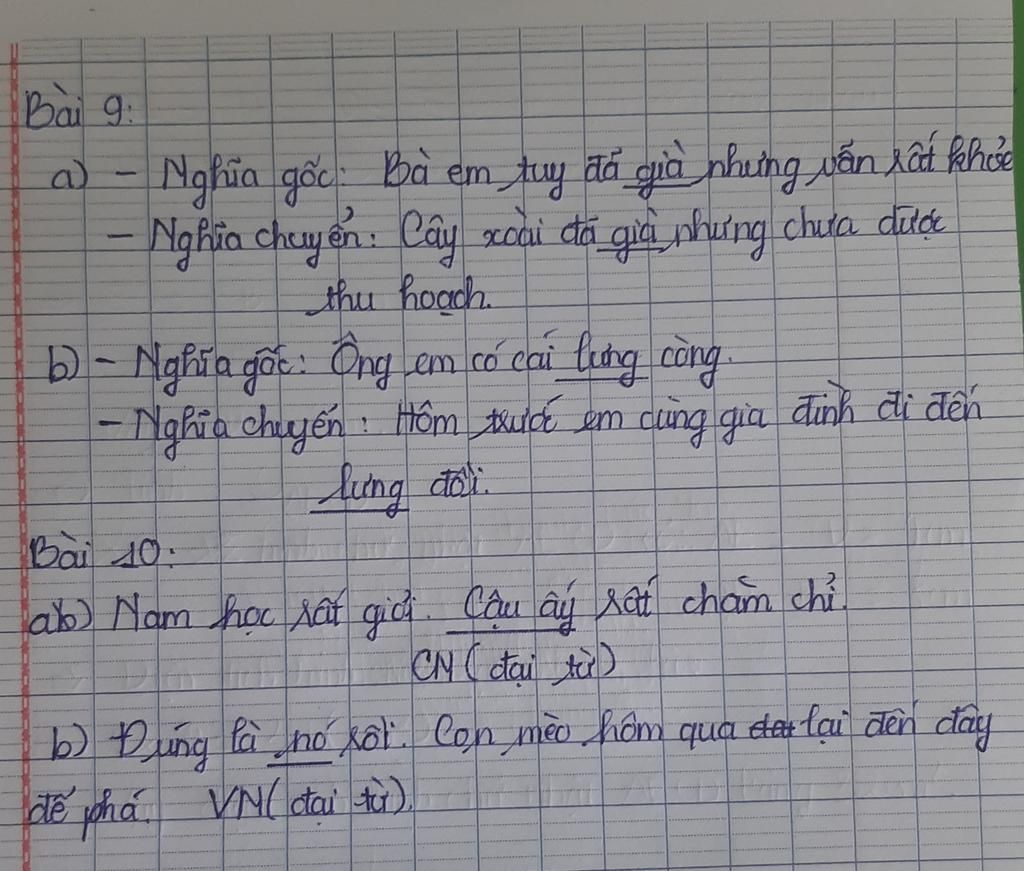 Bài 9:
a) - Nghĩa gốc: Bà em tuy đã già nhưng vẫn rất khỏe
- Nghĩa chuyển: Cây xoài đã già nhưng chưa được
thu hoạch.
b) - Nghĩa gốc: Ông em có cái lưng còng.
- Nghĩa chuyển: Hôm trước em cùng gia đình đi đến
lưng đồi.
Bài 10:
ab) Nam học rất giỏi. Cậu ấy rất chăm chỉ.
CN (đại từ)
b) Đúng là nó rồi. Con mèo hôm qua lại đến đây
để phá. VN (đại từ).